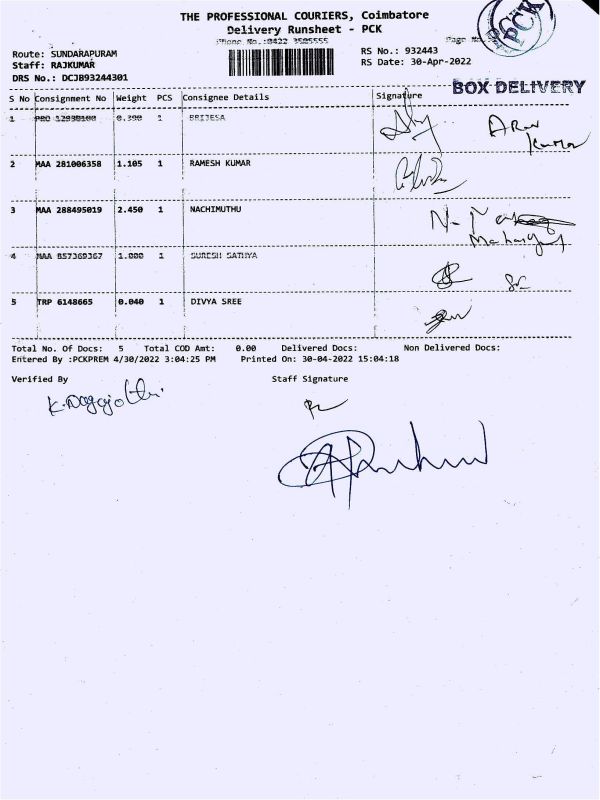 THE PROFESSIONAL COURIERS, Coimbatore
Delivery Runsheet - PCK
Phone No.:0422 3505555
Page No
Route: SUNDARAPURAM
RS No.: 932443
Staff: RAJKUMAR
RS Date: 30-Apr-2022
DRS No.: DCJB93244301
PCK
BOX DELIVERY
S No Consignment No Weight PCS Consignee Details Signature
1 PRO 12938100 0.390 1 BRIJESA
Arun
Kumar
2 MAA 281006358 1.105 1 RAMESH KUMAR
3 MAA 288495019 2.450 1 NACHIMUTHU
4 MAA 857369367 1.000 1 SURESH SATHYA
5 TRP 6148665 0.040 1 DIVYA SREE
Total No. Of Docs: 5 Total COD Amt: 0.00 Delivered Docs: Non Delivered Docs:
Entered By :PCKPREM 4/30/2022 3:04:25 PM Printed On: 30-04-2022 15:04:18
Verified By Staff Signature